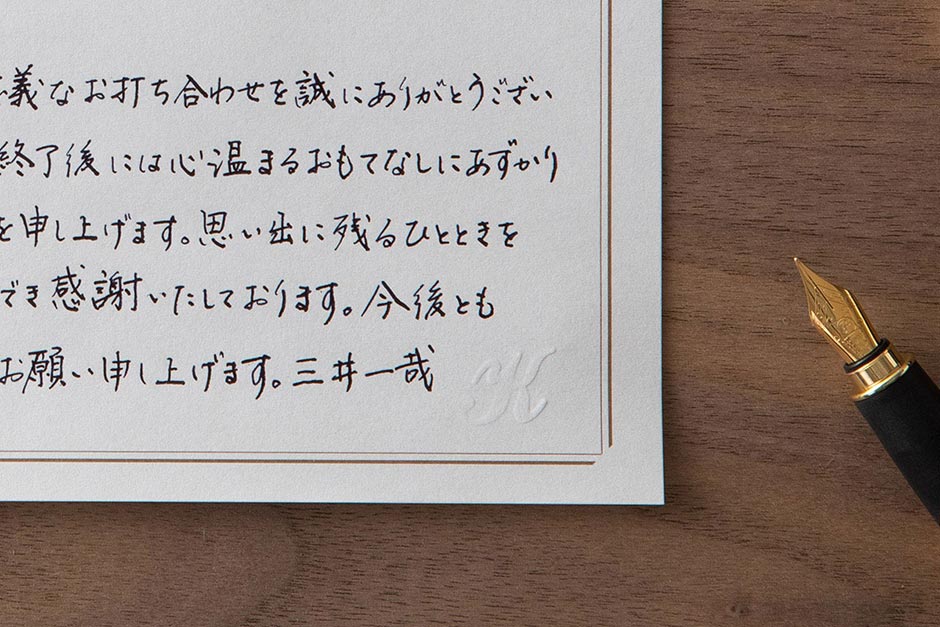 義なお打ち合わせを誠にありがとうござい
終了後には心温まるおもてなしにあずかり
を申し上げます。思い出に残るひとときを
でき感謝いたしております。今後とも
お願い申し上げます。三井一哉
K